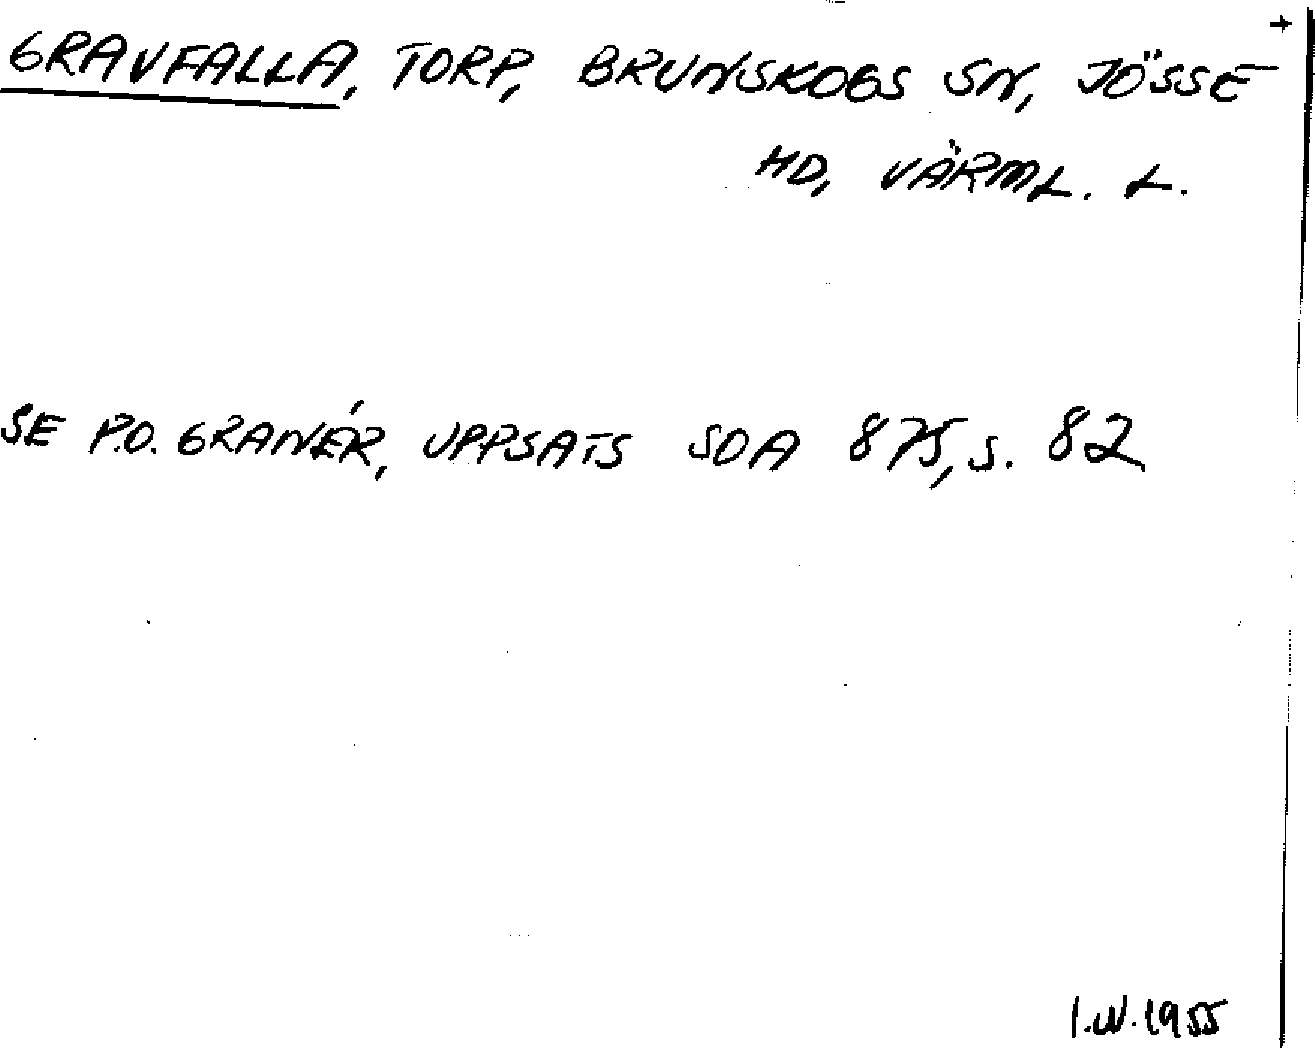 GRAVFALLA, TORP, BRUNSKOGS SN, JÖSSE
HD, VÄRML. L.
SE P.O. GRANÉR, UPPSATS SOA 875, S. 82
I.W. 1955